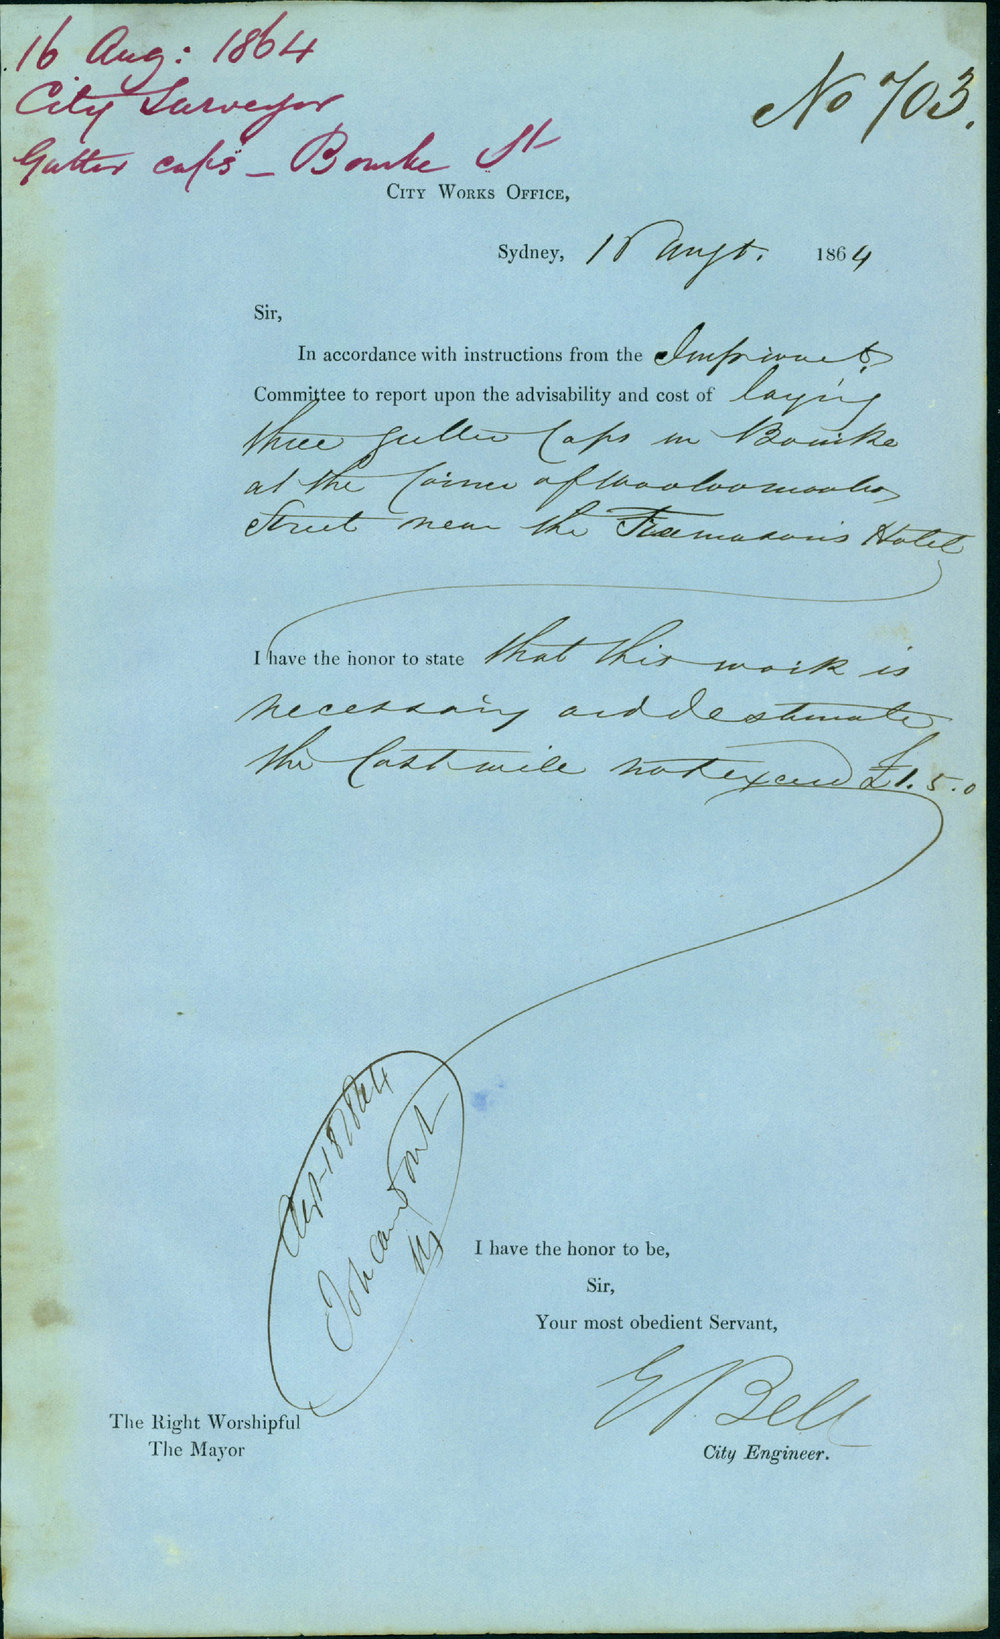 16 Aug: 1864
City Surveyor
Gutter caps – Bourke St
No 703.
City Works Office,
Sydney, Augt. 1864
Sir,
In accordance with instructions from the
Committee to report upon the advisability and cost of laying
three gutter Caps in Bourke
at the Corner of Woolloomooloo
Street near the Freemason's Hotel
I have the honor to state that this work is
necessary and I estimate
the Cost will not exceed £1.5.0
18/8/64
I have the honor to be,
Sir,
Your most obedient Servant,
E Bell
City Engineer.
The Right Worshipful
The Mayor